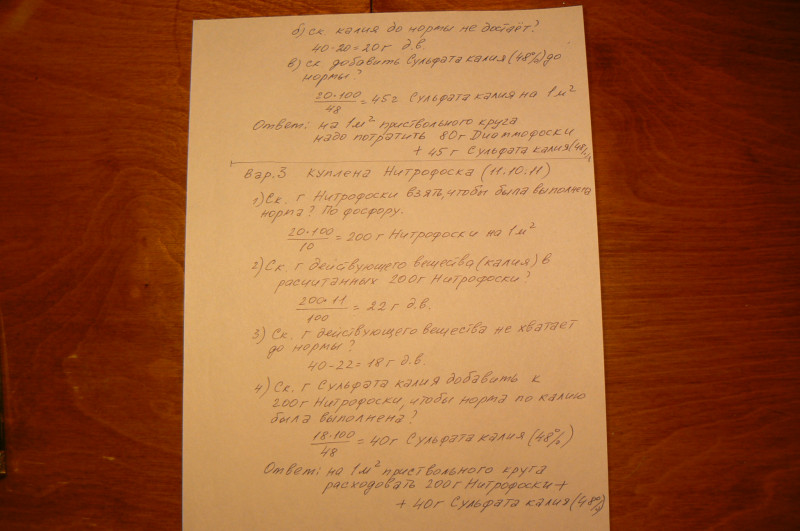 б) ск. калия до нормы не достаёт?
40-20=20г д.в.
в) ск добавить Сульфата калия (48%) до
нормы?
20·100/48 = 45г Сульфата калия на 1м²
Ответ: на 1м² приствольного круга
надо потратить 80г Диаммофоски
+ 45г Сульфата калия (48%)
Вар.3 Куплена Нитрофоска (11:10:11)
1) Ск. г Нитрофоски взять, чтобы была выполнена
норма? По фосфору.
20·100/10 = 200г Нитрофоски на 1м²
2) Ск. г действующего вещества (калия) в
расчитанных 200г Нитрофоски?
200·11/100 = 22г д.в.
3) Ск. г действующего вещества не хватает
до нормы?
40-22=18г д.в.
4) Ск. г Сульфата калия добавить к
200г Нитрофоски, чтобы норма по калию
была выполнена?
18·100/48 = 40г Сульфата калия (48%)
Ответ: на 1м² приствольного круга
расходовать 200г Нитрофоски +
+ 40г Сульфата калия (48%)